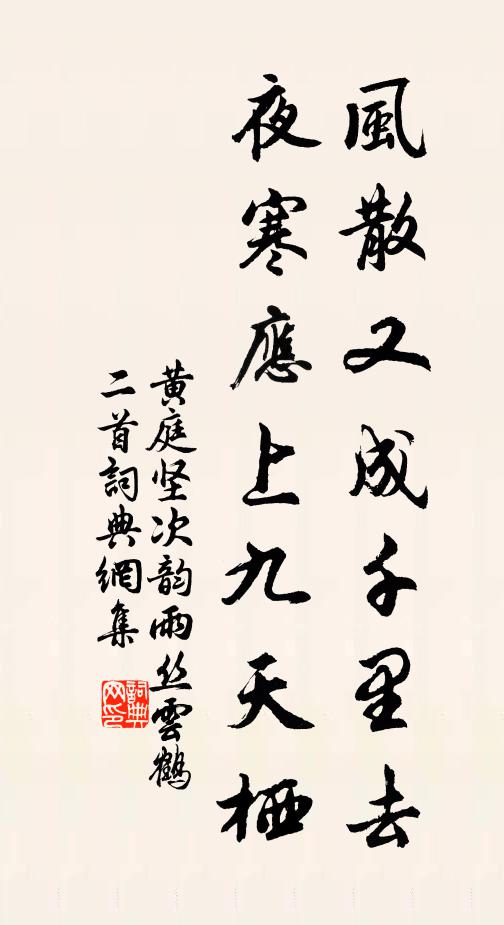 風散又成千里去
夜寒應上九天栖
黄庭坚次韵雨丝雲鶴
二首詞典網集
詞典网印